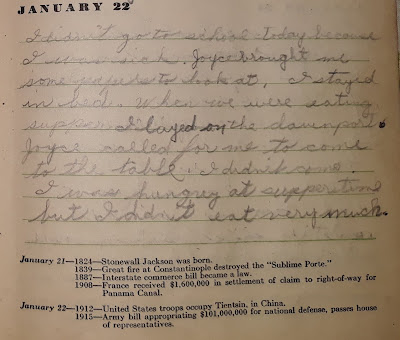 JANUARY 22
I didn't go to school today because
I was sick. Joyce brought me
some papers to look at, I stayed
in bed. When we were eating
supper I layed on the davenport.
Joyce called for me to come
to the table. I didn't come.
I was hungrey at suppertime
but I didn't eat very much.
January 21—1824—Stonewall Jackson was born.
1839—Great fire at Constantinople destroyed the "Sublime Porte."
1887—Interstate commerce bill became a law.
1908—France received $1,600,000 in settlement of claim to right-of-way for
Panama Canal.
January 22—1912—United States troops occupy Tientsin, in China.
1915—Army bill appropriating $101,000,000 for national defense, passes house
of representatives.